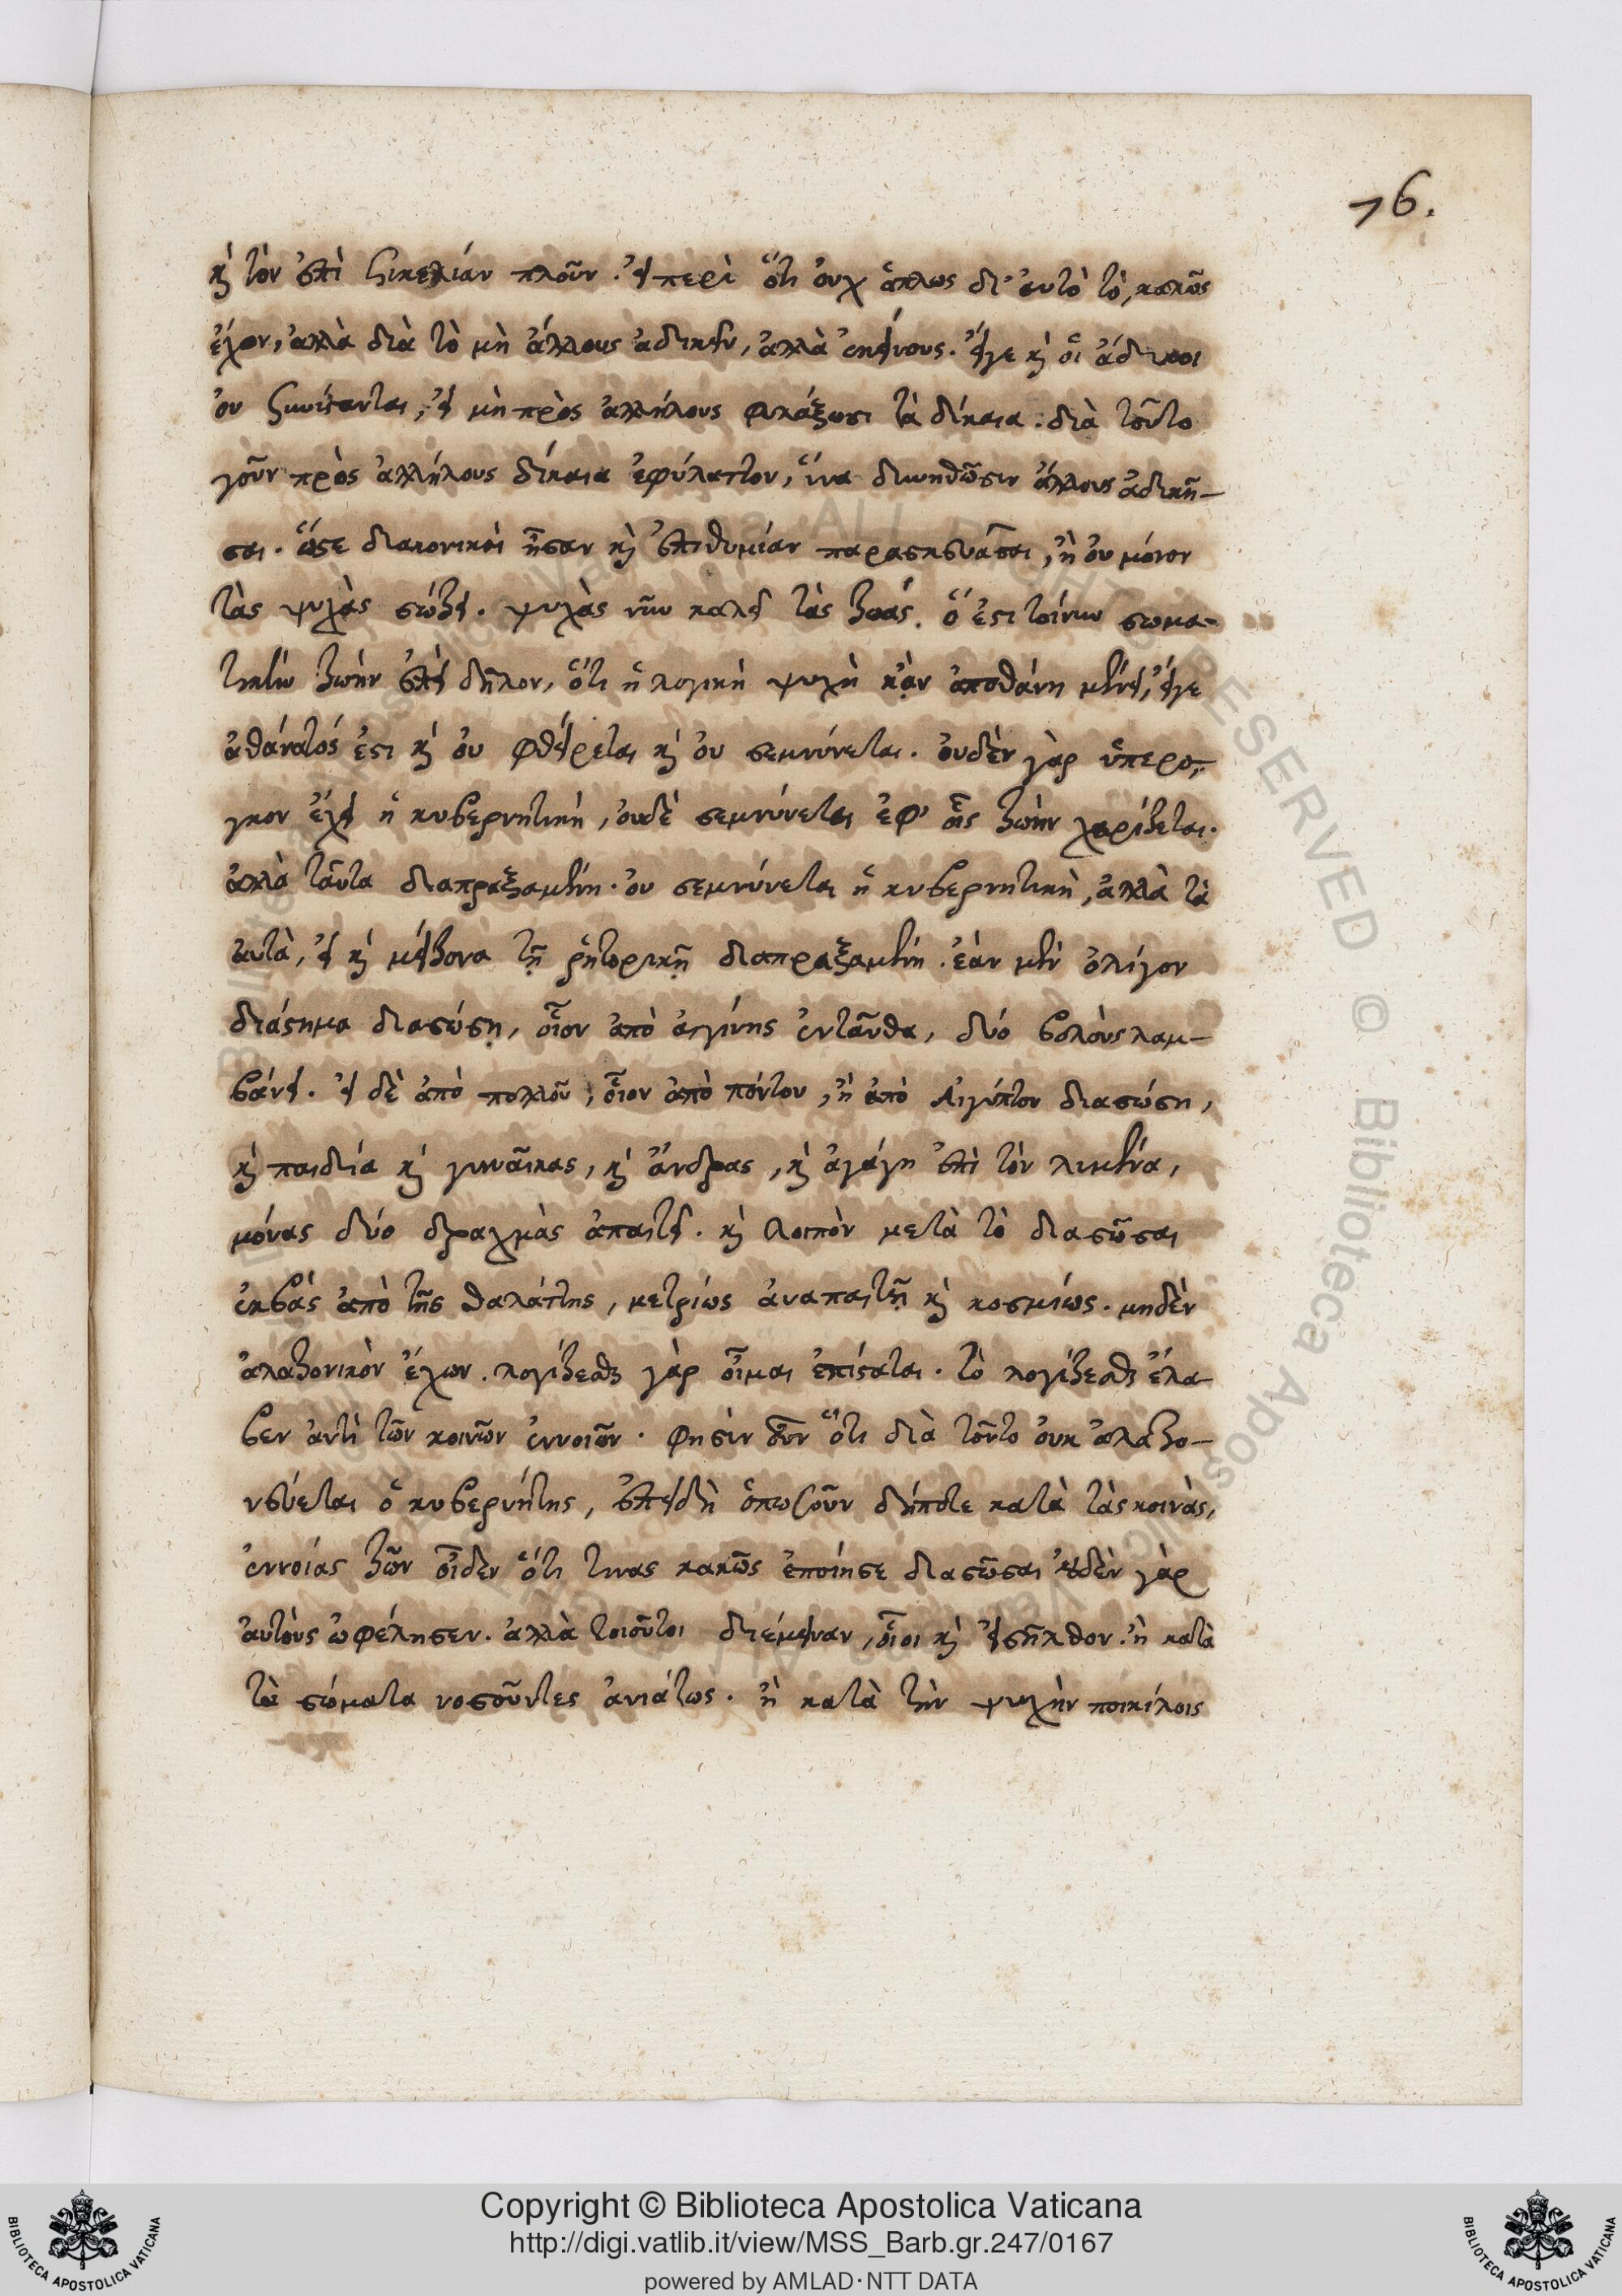 76.
καὶ τὸν ἐπὶ Σικελίαν πλοῦν. εἴπερὶ ὅτι οὐχ ἁπλῶς δι' αὐτὸ τὸ, κακῶς
ἔχον, ἀλλὰ διὰ τὸ μὴ ἄλλους ἀδικεῖν, ἀλλὰ ἐκείνους. εἴγε καὶ οἱ ἄδικοι
οὐ συνίστανται, εἰ μὴ πρὸς ἀλλήλους φυλάξωσι τὰ δίκαια. διὰ τοῦτο
γοῦν πρὸς ἀλλήλους δίκαια ἐφύλαττον, ἵνα δυνηθῶσιν ἄλλους ἀδικῆ-
σαι. ὥστε διακονικοὶ ἦσαν καὶ ἐπιθυμίαν παρασκευάσαι, ἢ οὐ μόνον
τὰς ψυχὰς σώζει. ψυχὰς νῦν καλεῖ τὰς ζωάς. ὅ ἐστι τοίνυν σωμα-
τικὴν ζωὴν ἐπεὶ δῆλον, ὅτι ἡ λογικὴ ψυχὴ κἂν ἀποθάνῃ μένει, εἴγε
ἀθάνατός ἐστι καὶ οὐ φθείρεται καὶ οὐ σεμνύνεται. οὐδὲν γὰρ ὑπερο-
γκον ἔχει ἡ κυβερνητικὴ, οὐδὲ σεμνύνεται ἐφ' οἷς ζωὴν χαρίζεται.
ἀλλὰ ταῦτα διαπραξαμένη. οὐ σεμνύνεται ἡ κυβερνητικὴ, ἀλλὰ τὰ
αὐτὰ, εἰ καὶ μείζονα τῇ ῥητορικῇ διαπραξαμένη. ἐὰν μὲν ὀλίγον
διάστημα διασώσῃ, οἷον ἀπὸ αἰγίνης ἐνταῦθα, δύο βολοὺς λαμ-
βάνει. εἰ δὲ ἀπὸ πολλοῦ, οἷον ἀπὸ πόντου, ἢ ἀπὸ Αἰγύπτου διασώσῃ,
καὶ παιδία καὶ γυναῖκας, καὶ ἄνδρας, καὶ ἀγάγῃ ἐπὶ τὸν λιμένα,
μόνας δύο δραχμὰς ἀπαιτεῖ. καὶ λοιπὸν μετὰ τὸ διασῶσαι
ἐκβὰς ἀπὸ τῆς θαλάττης, μετρίως ἀναπαιτῇ καὶ κοσμίως. μηδὲν
ἀλαζονικὸν ἔχων. λογίζεσθαι γὰρ οἶμαι ἐπίσταται. τὸ λογίζεσθαι ἔλα-
βεν ἀντὶ τῶν κοινῶν ἐννοιῶν. φησὶν οὖν ὅτι διὰ τοῦτο οὐκ ἀλαζο-
νεύεται ὁ κυβερνήτης, ἐπειδὴ ὁπωσοῦν δήποτε κατὰ τὰς κοινὰς,
ἐννοίας ζῶν οἶδεν ὅτι τινας κακῶς ἐποίησε διασῶσαι οὐδὲν γὰρ
αὐτοὺς ὠφέλησεν. ἀλλὰ τοιοῦτοι διέμειναν, οἷοι καὶ εἰσῆλθον. ἢ κατὰ
τὰ σώματα νοσοῦντες ἀνιάτως. ἢ κατὰ τὴν ψυχὴν ποικίλοις
Copyright © Biblioteca Apostolica Vaticana
http://digi.vatlib.it/view/MSS_Barb.gr.247/0167
powered by AMLAD·NTT DATA